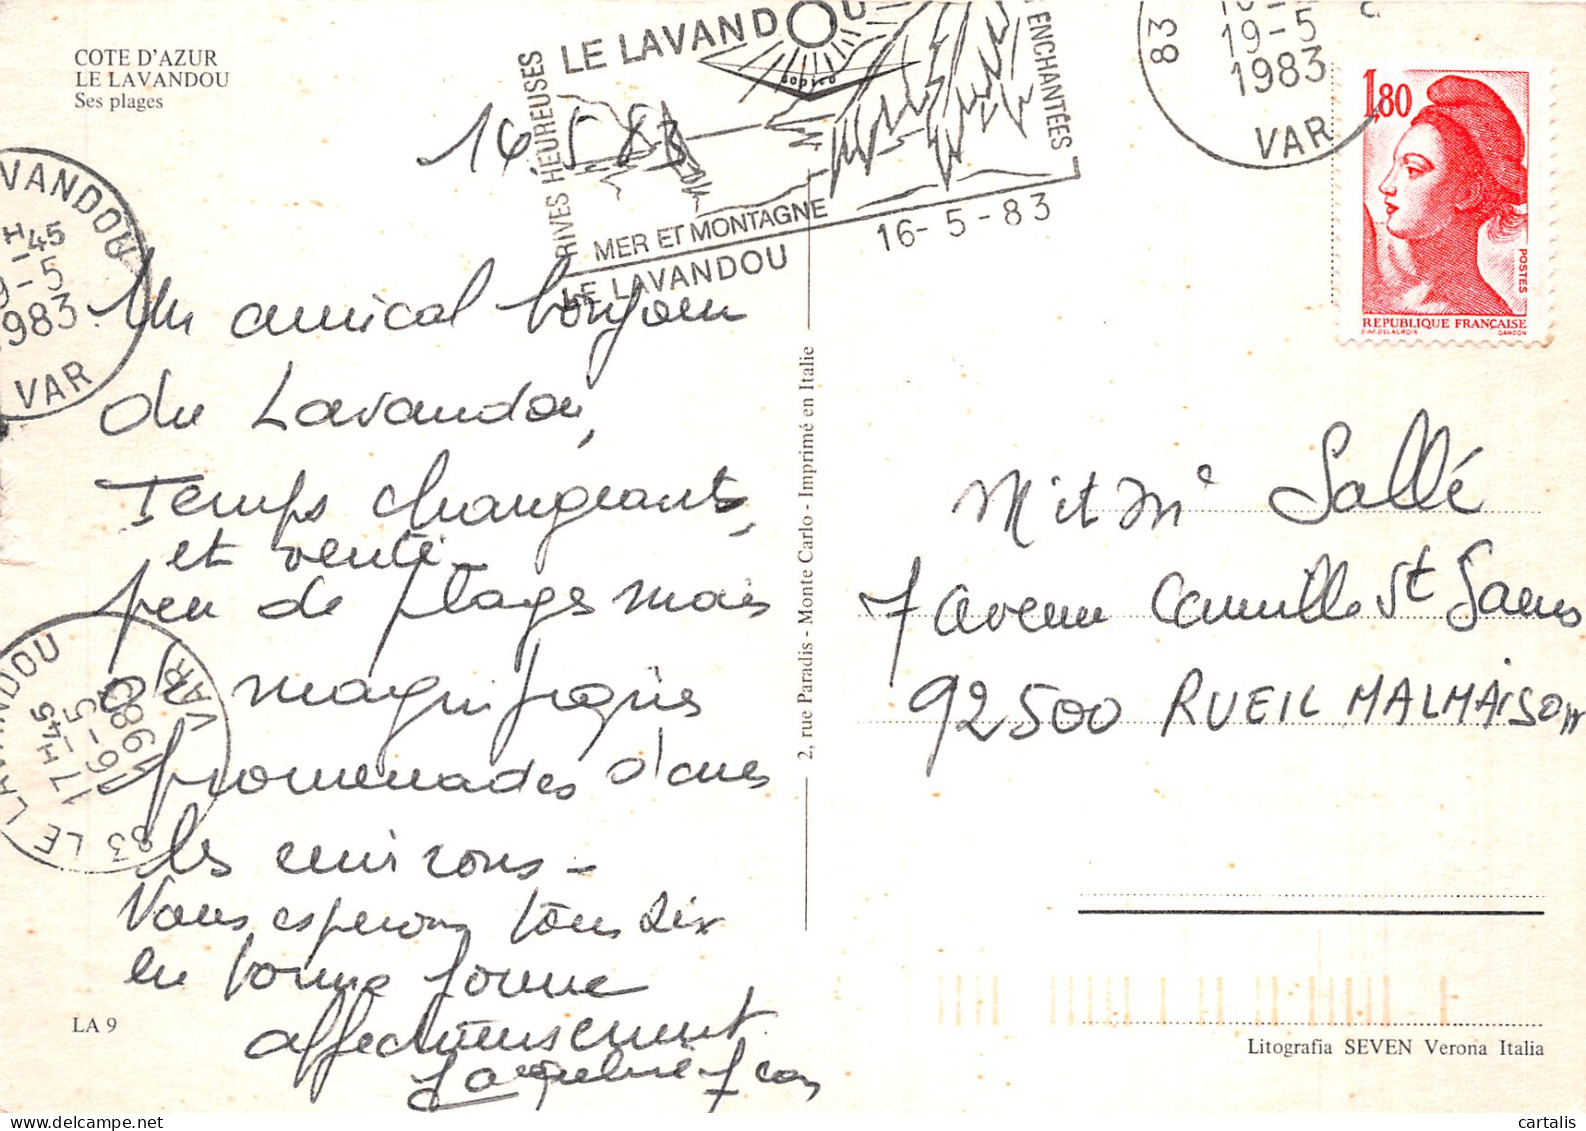 COTE D'AZUR
LE LAVANDOU
Ses plages
16 5 83
RIVES HEUREUSES
LE LAVANDOU
sopico
ENCHANTÉES
MER ET MONTAGNE
LE LAVANDOU
16-5-83
83
19-5
1983
VAR
1,80
POSTES
REPUBLIQUE FRANÇAISE
D'AP. DELACROIX
GANDON
VANDOU
H-45
9-5
1983
VAR
Un amical bonjour
du Lavandou,
Temps changeants,
et venté
peu de plages mais
de magnifiques
promenades dans
les environs -
Vous esperons tous dix
en bonne forme
affectueusement
Jacqueline Jean
83 LE LAVANDOU
17H45
16-5
1983
VAR
LA 9
2, rue Paradis - Monte Carlo - Imprimé en Italie
M et Me Sallé
7 avenue Camille St Saens
92500 RUEIL MALMAISON
Litografia SEVEN Verona Italia
cartalis